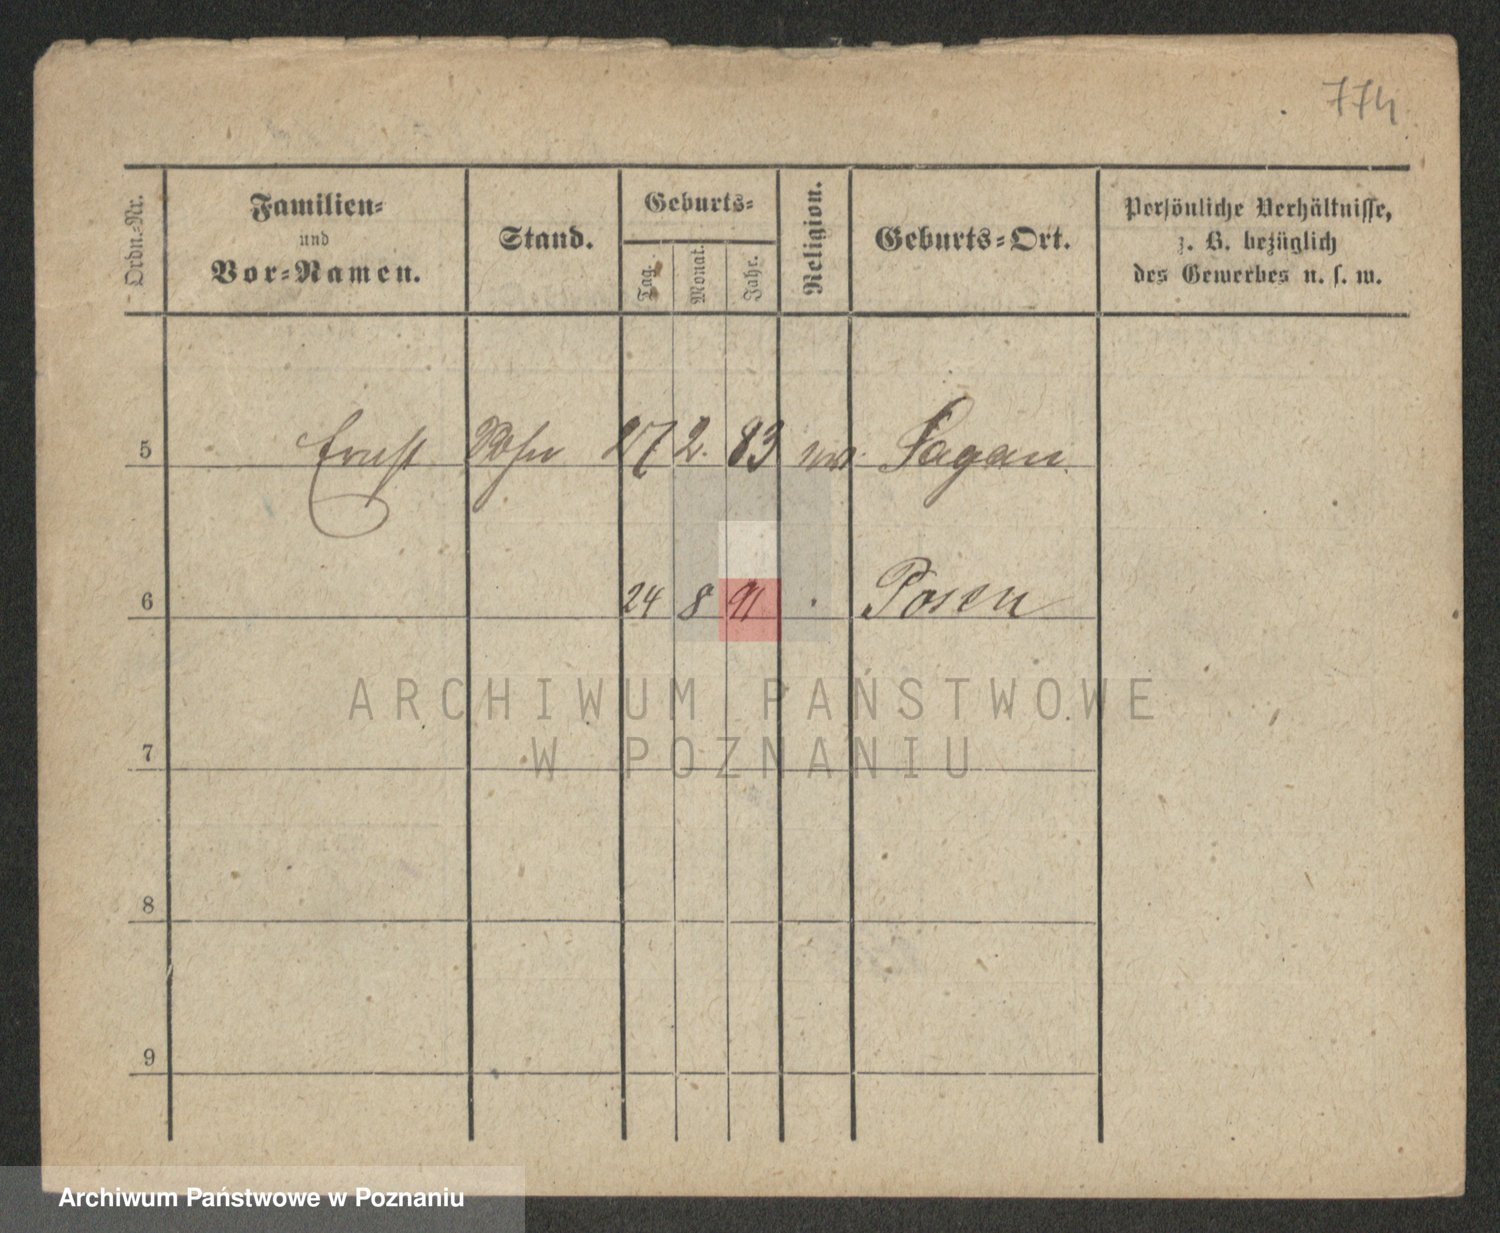 774
Ordn.-Nr.
Familien-
und
Vor-Namen.
Stand.
Geburts-
Tag.
Monat.
Jahr.
Religion.
Geburts-Ort.
Persönliche Verhältnisse,
z. B. bezüglich
des Gewerbes u. s. w.
5 Ernst 27 2. 83 Sagan
6 24 8 91 Posen
ARCHIWUM PAŃSTWOWE
W POZNANIU
7
8
9
Archiwum Państwowe w Poznaniu